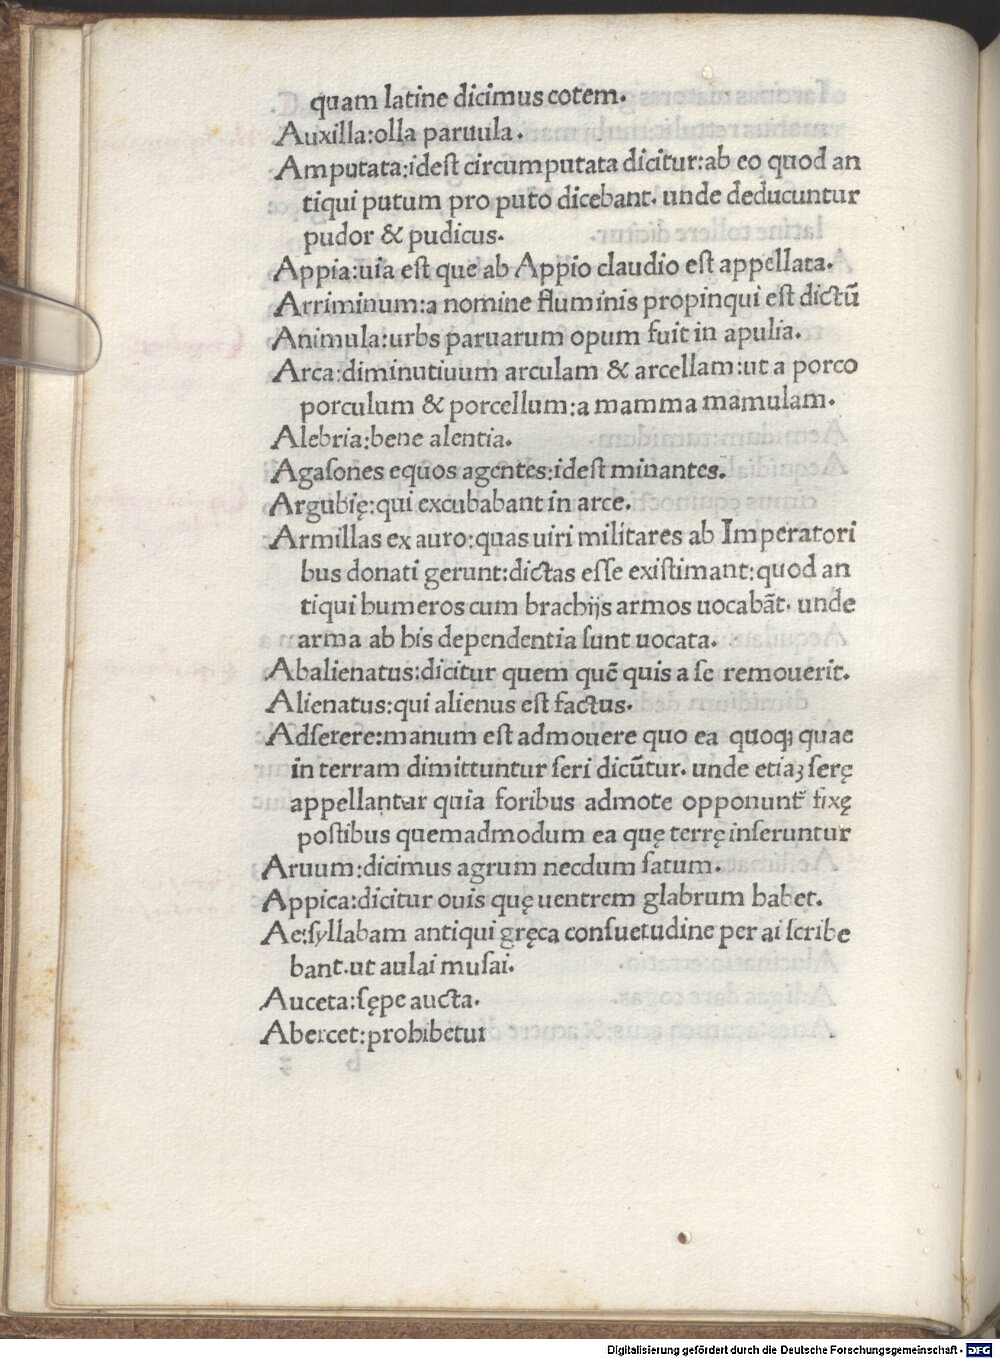 quam latine dicimus cotem.
Auxilla:olla paruula.
Amputata:idest circumputata dicitur:ab eo quod an
tiqui putum pro puto dicebant. unde deducuntur
pudor & pudicus.
Appia:uia est que ab Appio claudio est appellata.
Arriminum:a nomine fluminis propinqui est dictū
Animula:urbs paruarum opum fuit in apulia.
Arca:diminutiuum arculam & arcellam:ut a porco
porculum & porcellum:a mamma mamulam.
Alebria:bene alentia.
Agaſones equos agentes:idest minantes.
Argubię:qui excubabant in arce.
Armillas ex auro:quas uiri militares ab Imperatori
bus donati gerunt:dictas eſſe existimant:quod an
tiqui humeros cum brachijs armos uocabāt. unde
arma ab his dependentia ſunt uocata.
Abalienatus:dicitur quem quē quis a ſe remouerit.
Alienatus:qui alienus est factus.
Adſerere:manum est admouere quo ea quoqꝫ quae
in terram dimittuntur ſeri dicūtur. unde etiaꝫ ſerę
appellantur quia foribus admote opponunt̄ fixę
postibus quemadmodum ea quę terrę inſeruntur
Aruum:dicimus agrum necdum ſatum.
Appica:dicitur ouis quę uentrem glabrum habet.
Ae:ſyllabam antiqui gręca conſuetudine per ai ſcribe
bant.ut aulai muſai.
Auceta:ſępe aucta.
Abercet:prohibetui
Digitalisierung gefördert durch die Deutsche Forschungsgemeinschaft - DFG